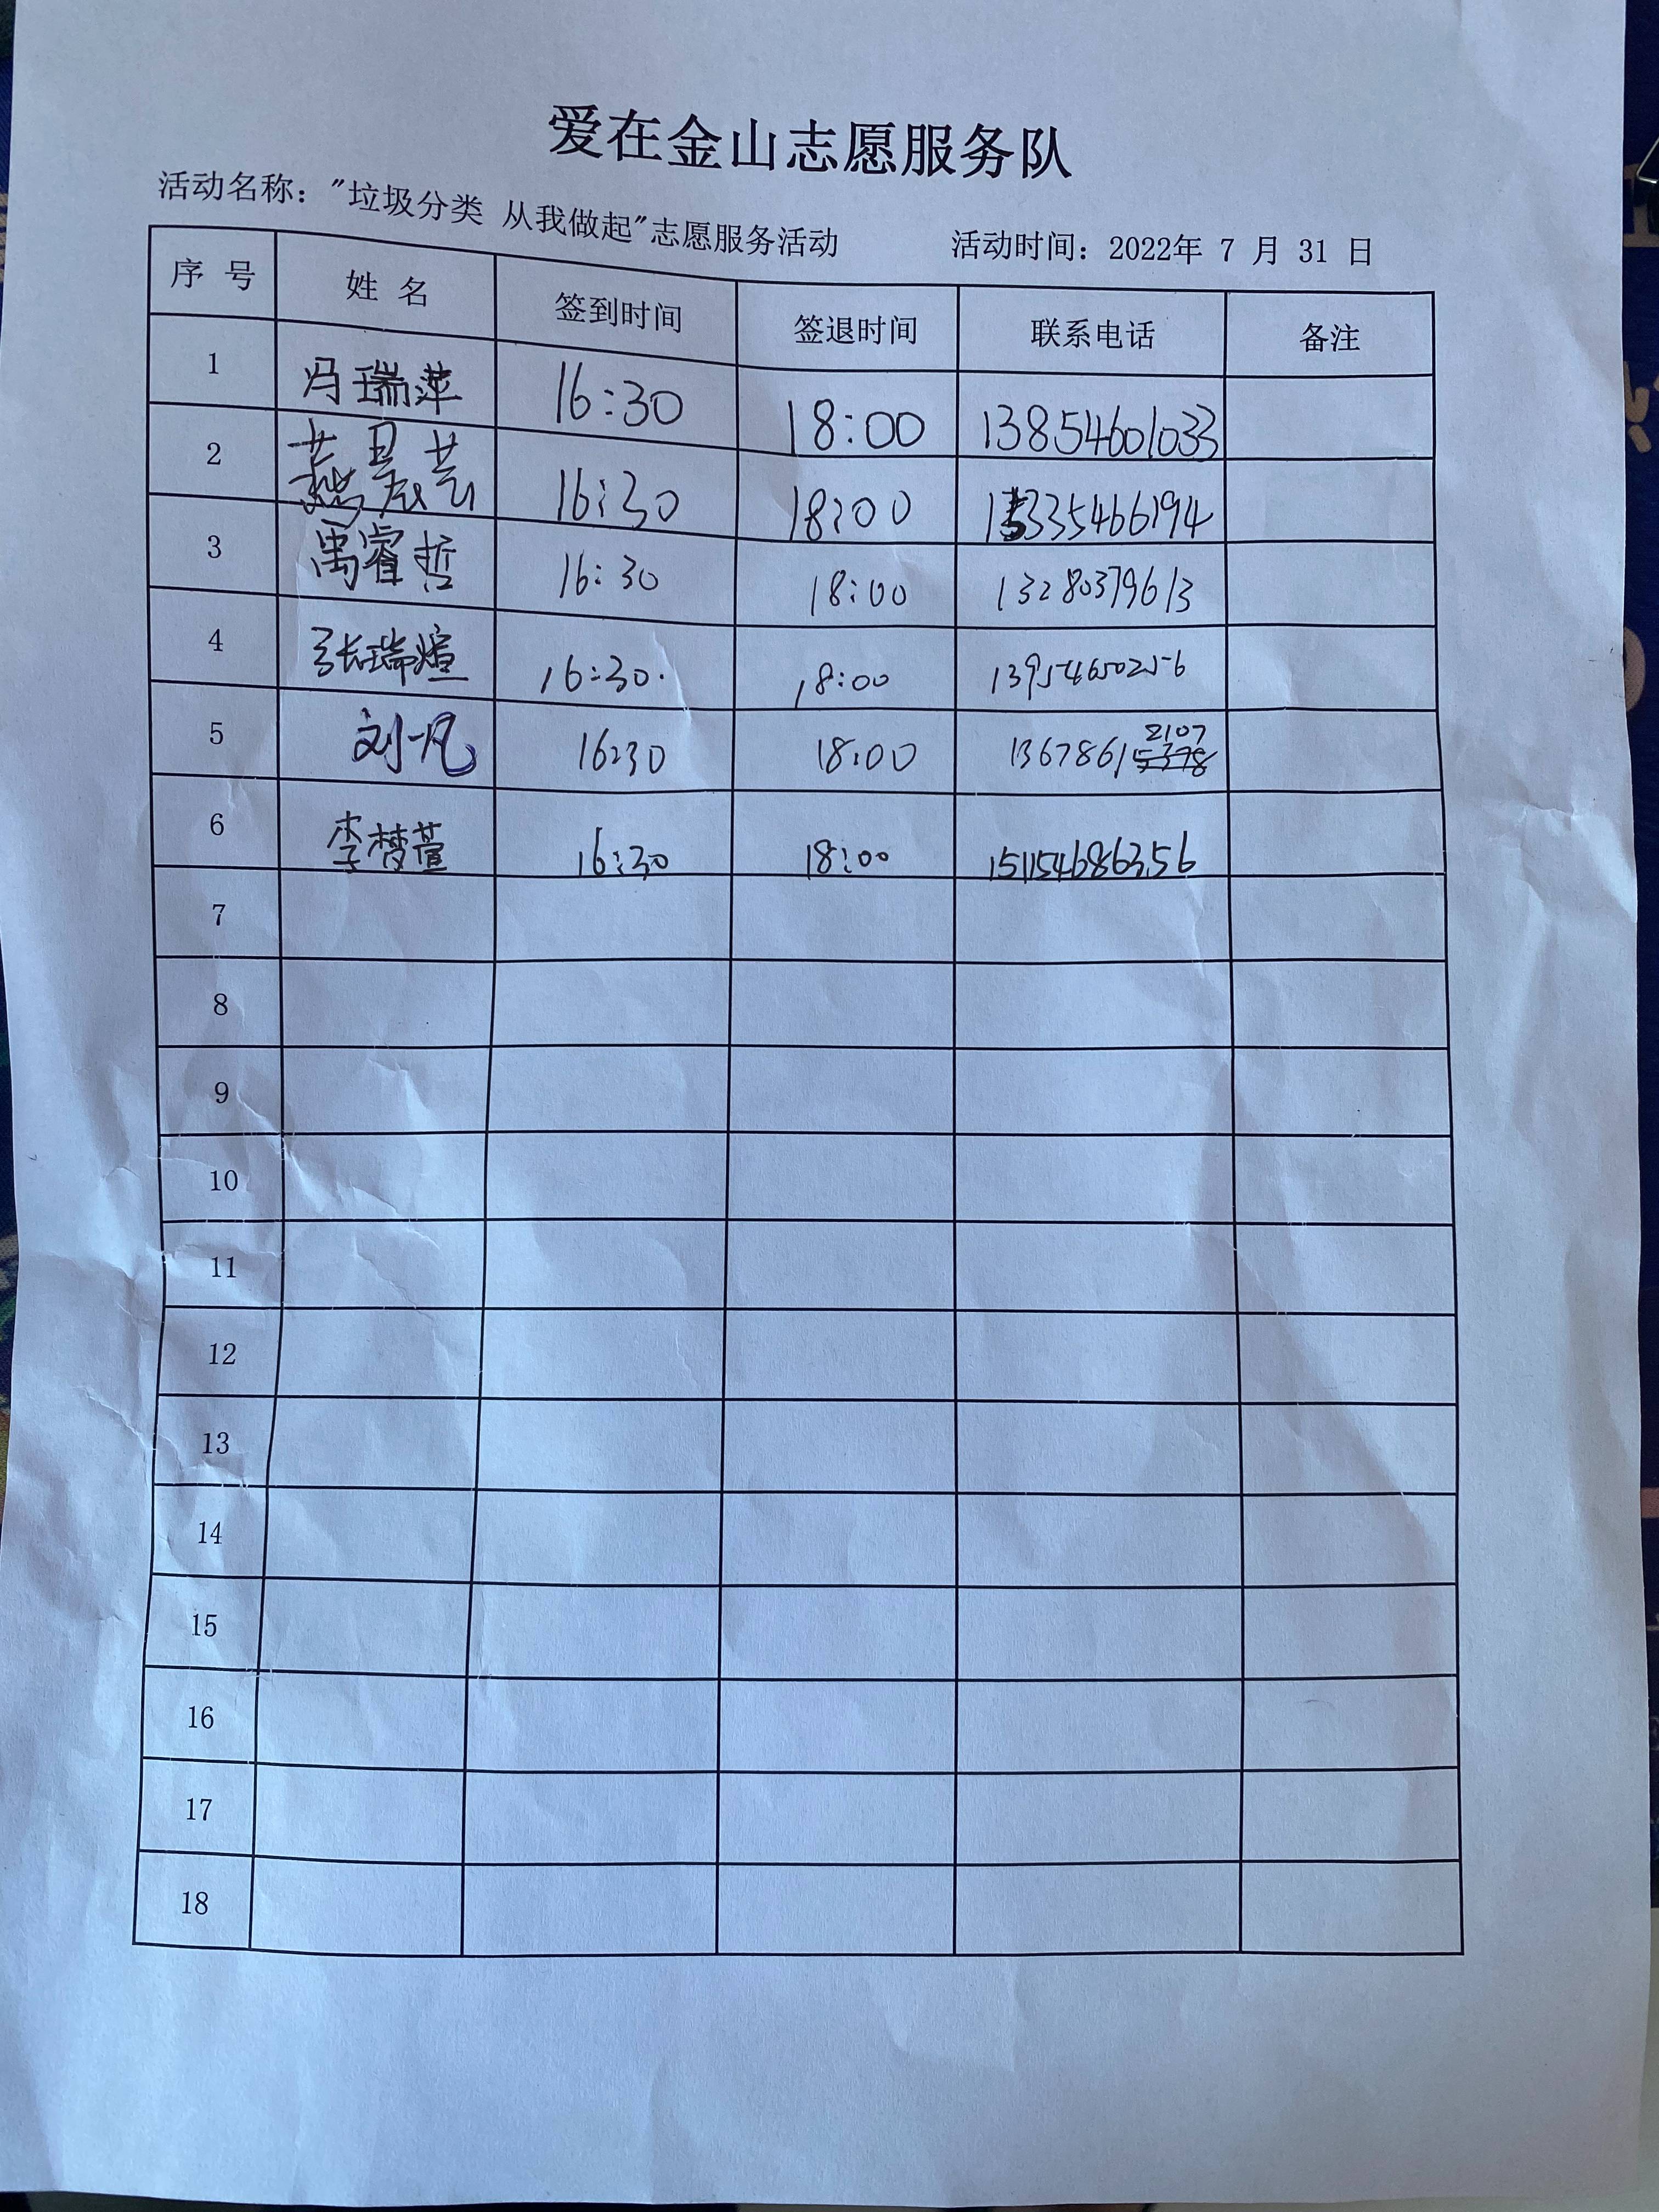 爱在金山志愿服务队
活动名称："垃圾分类 从我做起"志愿服务活动 活动时间：2022年 7 月 31 日
序 号 姓 名 签到时间 签退时间 联系电话 备注
1 冯瑞萍 16:30 18:00 13854601033
2 燕晨芸 16:30 18:00 15335466194
3 禹睿哲 16:30 18:00 13280379613
4 张瑞煊 16:30. 18:00 13954650256
5 刘一凡 16:30 18:00 13678612107
6 李梦萱 16:30 18:00 151154686356
7
8
9
10
11
12
13
14
15
16
17
18